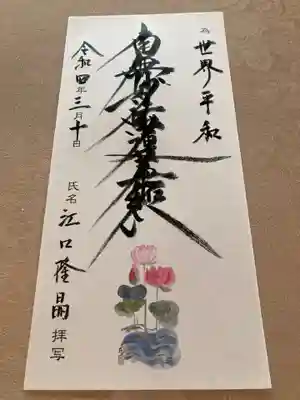 為 世界平和
南無妙法蓮華経
令和四年三月十日
氏名 江口隆晶 拝写